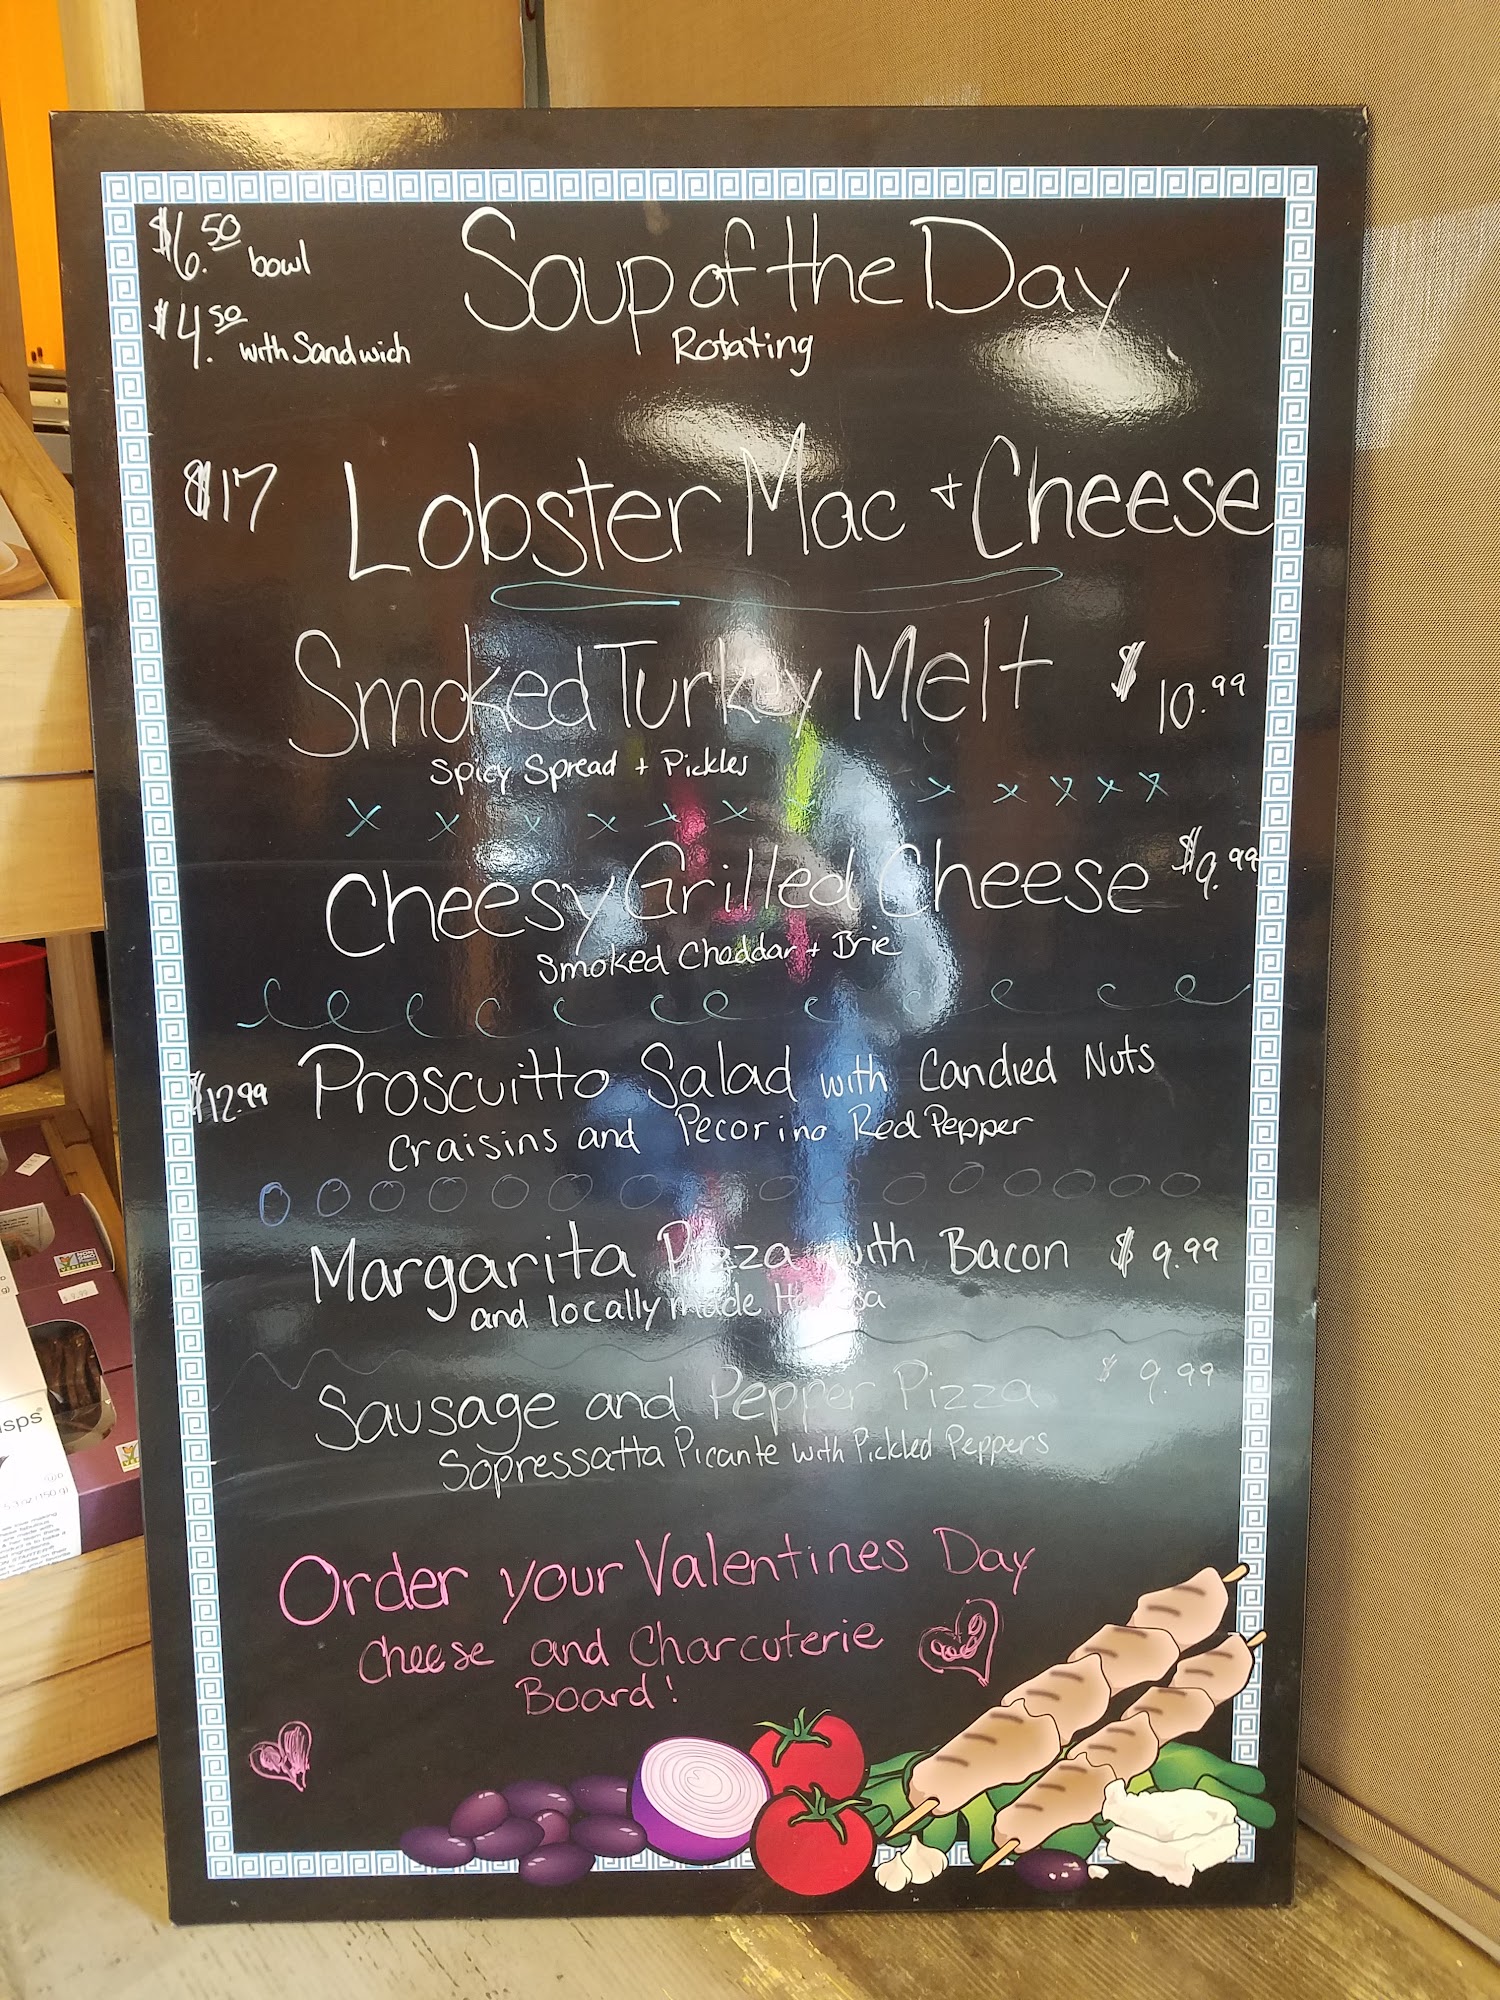 $6.50 bowl
$4.50 with Sandwich
Soup of the Day
Rotating
$17 Lobster Mac + Cheese
Smoked Turkey Melt $10.99
Spicy Spread + Pickles
Cheesy Grilled Cheese $9.99
Smoked Cheddar + Brie
$12.99 Proscuitto Salad with Candied Nuts
Craisins and Pecorino Red Pepper
Margarita Pizza with Bacon $9.99
and locally made
Sausage and Pepper Pizza $9.99
Sopressatta Picante with Pickled Peppers
Order your Valentines Day
Cheese and Charcuterie
Board!